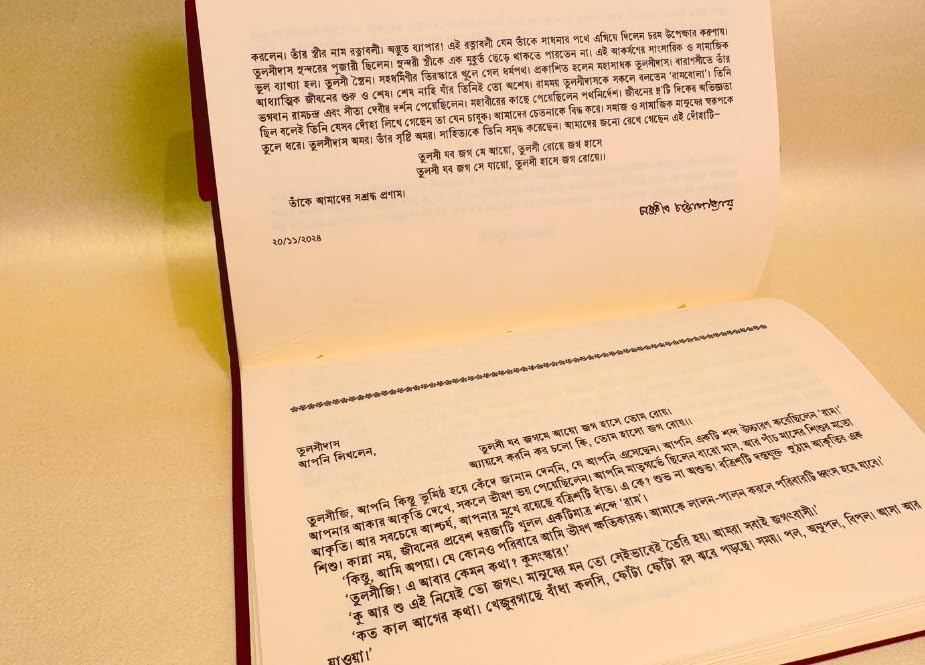 করলেন। তাঁর স্ত্রীর নাম রত্নাবলী। অদ্ভুত ব্যাপার! এই রত্নাবলী যেন তাঁকে সাধনার পথে এগিয়ে দিলেন চরম উপেক্ষার করুণায়।
তুলসীদাস সুন্দরের পূজারী ছিলেন। সুন্দরী স্ত্রীকে এক মুহূর্ত ছেড়ে থাকতে পারতেন না। এই আকর্ষণের সাংসারিক ও সামাজিক
ভুল ব্যাখ্যা হল। তুলসী স্ত্রৈন। সহধর্মিণীর তিরস্কারে খুলে গেল ধর্মপথ। প্রকাশিত হলেন মহাসাধক তুলসীদাস। বারাণসীতে তাঁর
আধ্যাত্মিক জীবনের শুরু ও শেষ। শেষ নাহি যাঁর তিনিই তো অশেষ। রামময় তুলসীদাসকে সকলে বলতেন 'রামবোলা'। তিনি
ভগবান রামচন্দ্র এবং সীতা দেবীর দর্শন পেয়েছিলেন। মহাবীরের কাছে পেয়েছিলেন পথনির্দেশ। জীবনের দু'টি দিকের অভিজ্ঞতা
ছিল বলেই তিনি যেসব দোঁহা লিখে গেছেন তা যেন চাবুক। আমাদের চেতনাকে বিদ্ধ করে। সমাজ ও সামাজিক মানুষের স্বরূপকে
তুলে ধরে। তুলসীদাস অমর। তাঁর সৃষ্টি অমর। সাহিত্যকে তিনি সমৃদ্ধ করেছেন। আমাদের জন্যে রেখে গেছেন এই দোঁহাটি–
তুলসী যব জগ মে আয়ো, তুলসী রোয়ে জগ হাসে
তুলসী যব জগ সে যায়ো, তুলসী হাসে জগ রোয়ে।।
তাঁকে আমাদের সশ্রদ্ধ প্রণাম।
সঞ্জীব চট্টোপাধ্যায়
২০/১১/২০২৪
তুলসীদাস
আপনি লিখলেন,
তুলসী যব জগমে আয়ো জগ হাসে তোম রোয়।
অ্যায়সে করনি কর চলো কি, তোম হাসো জগ রোয়।।
তুলসীজি, আপনি কিন্তু ভূমিষ্ঠ হয়ে কেঁদে জানান দেননি, যে আপনি এসেছেন। আপনি একটি শব্দ উচ্চারণ করেছিলেন 'রাম।'
আপনার আকার আকৃতি দেখে, সকলে ভীষণ ভয় পেয়েছিলেন। আপনি মাতৃগর্ভে ছিলেন বারো মাস, আর পাঁচ মাসের শিশুর মতো
আকৃতি। আর সবচেয়ে আশ্চর্য, আপনার মুখে রয়েছে বত্রিশটি দাঁত। এ কে! শুভ না অশুভ। বত্রিশটি দন্তযুক্ত সুঠাম আকৃতির এক
শিশু। কান্না নয়, জীবনের প্রবেশ দরজাটি খুলল একটিমাত্র শব্দে 'রাম'।
'কিন্তু, আমি অপয়া। যে কোনও পরিবারে আমি ভীষণ ক্ষতিকারক। আমাকে লালন-পালন করলে পরিবারটি ধ্বংস হয়ে যাবে।'
'তুলসীজি! এ আবার কেমন কথা? কুসংস্কার!'
'কু আর শু এই নিয়েই তো জগৎ। মানুষের মন তো সেইভাবেই তৈরি হয়। আমরা সবাই জগৎবাসী।'
'কত কাল আগের কথা। খেজুরগাছে বাঁধা কলসি, ফোঁটা ফোঁটা রস ঝরে পড়ছে। সময়। পল, অনুপল, বিপল। আসা আর
যাওয়া।'